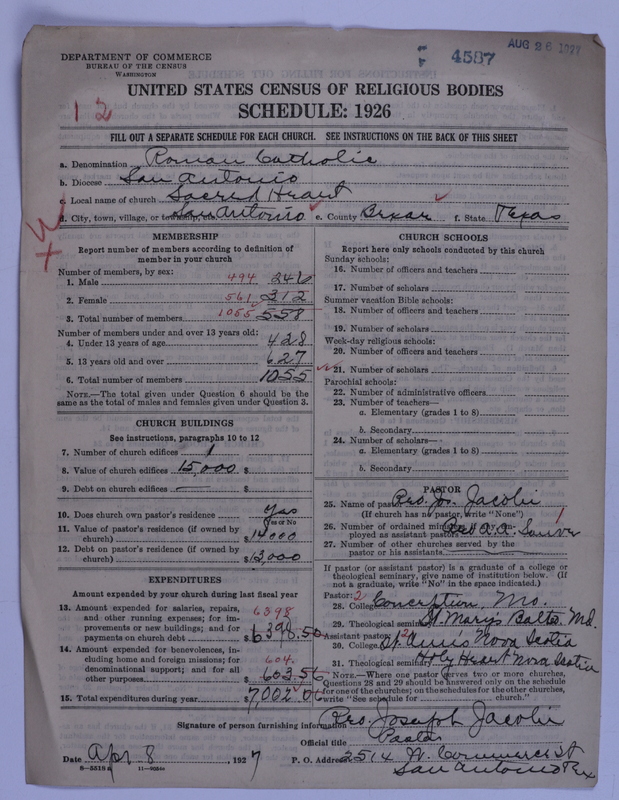 DEPARTMENT OF COMMERCE
BUREAU OF THE CENSUS
WASHINGTON
4587
AUG 26 1927
UNITED STATES CENSUS OF RELIGIOUS BODIES
SCHEDULE: 1926
1 2
FILL OUT A SEPARATE SCHEDULE FOR EACH CHURCH. SEE INSTRUCTIONS ON THE BACK OF THIS SHEET
a. Denomination Roman Catholic
b. Diocese San Antonio
c. Local name of church Sacred Heart
d. City, town, village, or township San Antonio e. County Bexar f. State Texas
MEMBERSHIP
Report number of members according to definition of
member in your church
Number of members, by sex:
1. Male 494 246
2. Female 561 312
3. Total number of members 1055 558
Number of members under and over 13 years old:
4. Under 13 years of age 428
5. 13 years old and over 627
6. Total number of members 1055
NOTE.—The total given under Question 6 should be the
same as the total of males and females given under Question 3.
CHURCH BUILDINGS
See instructions, paragraphs 10 to 12
7. Number of church edifices 1
8. Value of church edifices 15,000 $
9. Debt on church edifices — $
10. Does church own pastor's residence Yes
Yes or No
11. Value of pastor's residence (if owned by
church) $14,000
12. Debt on pastor's residence (if owned by
church) $13,000
EXPENDITURES
Amount expended by your church during last fiscal year
13. Amount expended for salaries, repairs,
and other running expenses; for im-
provements or new buildings; and for
payments on church debt 6398 $6398.50
14. Amount expended for benevolences, in-
cluding home and foreign missions; for
denominational support; and for all
other purposes 604 $603.56
15. Total expenditures during year $7,002.06
CHURCH SCHOOLS
Report here only schools conducted by this church
Sunday schools:
16. Number of officers and teachers
17. Number of scholars
Summer vacation Bible schools:
18. Number of officers and teachers
19. Number of scholars
Week-day religious schools:
20. Number of officers and teachers
21. Number of scholars
Parochial schools:
22. Number of administrative officers
23. Number of teachers—
a. Elementary (grades 1 to 8)
b. Secondary
24. Number of scholars—
a. Elementary (grades 1 to 8)
b. Secondary
PASTOR
25. Name of pastor Rev. Jos. Jacobi
(If church has no pastor, write "None")
26. Number of ordained ministers em-
ployed as assistant pastors 1
27. Number of other churches served by the
pastor or his assistants
If pastor (or assistant pastor) is a graduate of a college or
theological seminary, give name of institution below. (If
not a graduate, write "No" in the space indicated.)
Pastor: 2
28. College Conception, Mo.
29. Theological seminary St. Mary's Balto. Md.
Assistant pastor: 2
30. College St. Ann's Nova Scotia
31. Theological seminary Holy Heart Nova Scotia
NOTE.—Where one pastor serves two or more churches,
Questions 28 and 29 should be answered only on the schedule
for one of the churches; on the schedules for the other churches,
write "See schedule for church."
Signature of person furnishing information Rev. Joseph Jacobi
Official title Pastor
Date Apr 8, 1927 P. O. Address 2514 W. Commerce St
San Antonio Tex
8—5518a 11—9054